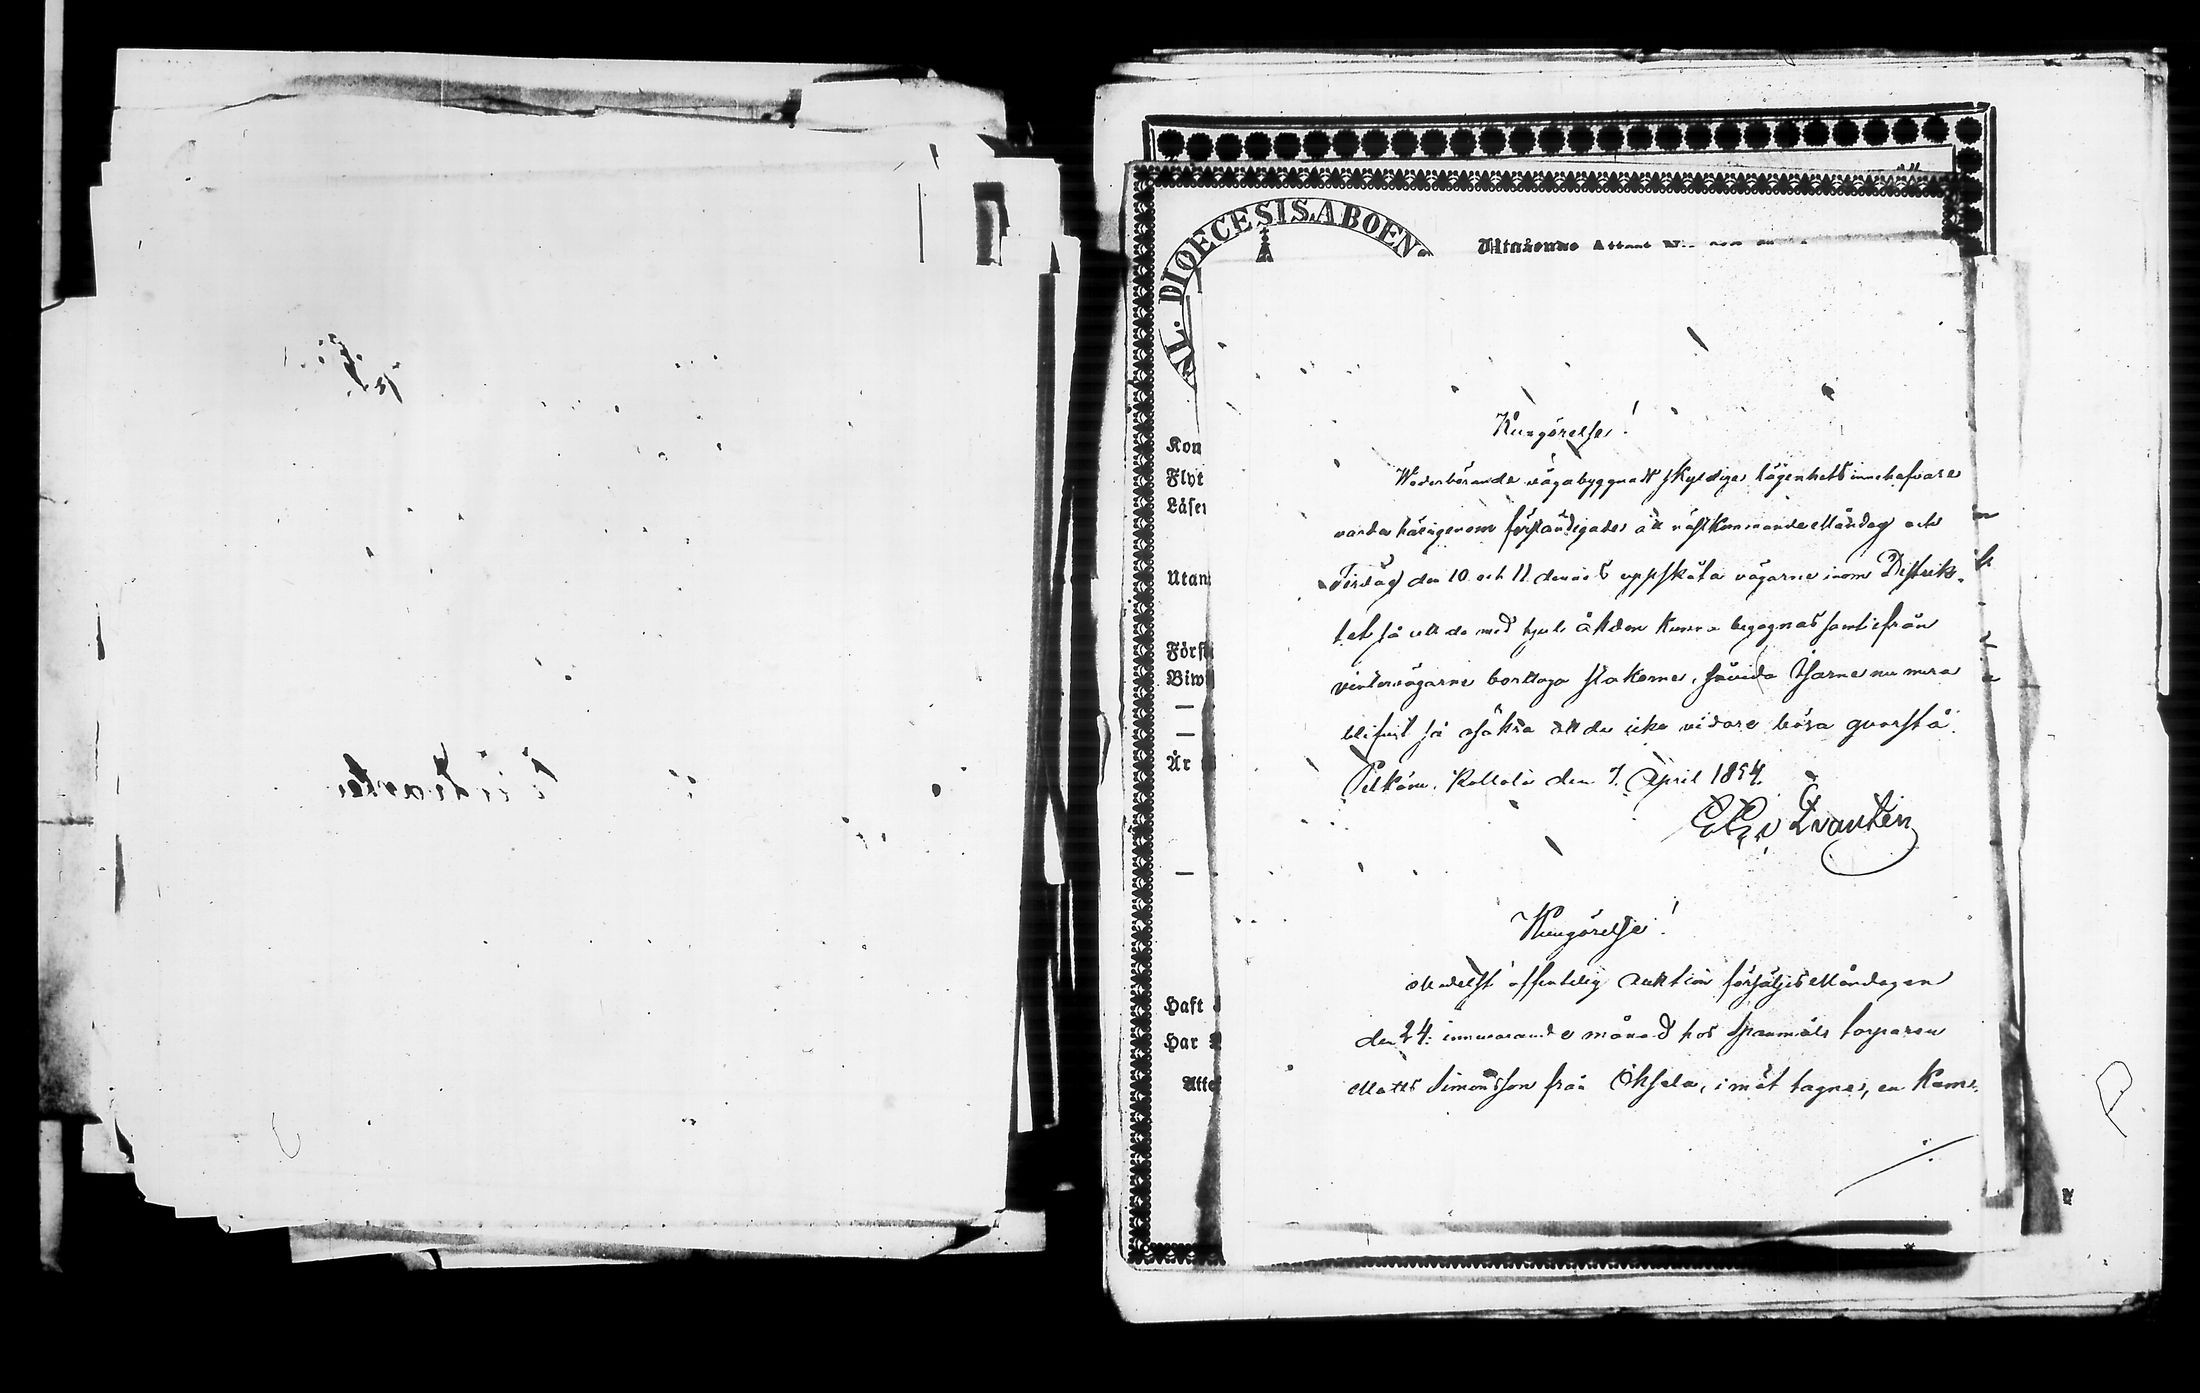 NL. DIOECESIS. ABOEN
Utgående Attest N
Kon
Flyt
Läser
Utan
Först
Biw
—
—
År
—
Haft
Har
Atte
Kungörelse!
Wederbörande vägabyggnads skyldige lägenhets innehafvare
varda härigenom förständigade att nästkommande Måndag och
Tisdag den 10 och 11 dennes uppskåta vägarne inom Distrik-
tet så att de med hjul åkdon kunna begagnas samt ifrån
vintervägarne borttaga stakorne, såvida isarne nu mera
blifvit så osäkra att de icke vidare böra qvarstå.
Pelkäne. Kallola den 7. April 1854.
v Qvanten
Kungörelse!
Medelst offentelig auktion försäljes Måndagen
den 24: innevarande månad hos Spannmåls torparen
Matts Simonsson från i mät tagne, en
./.